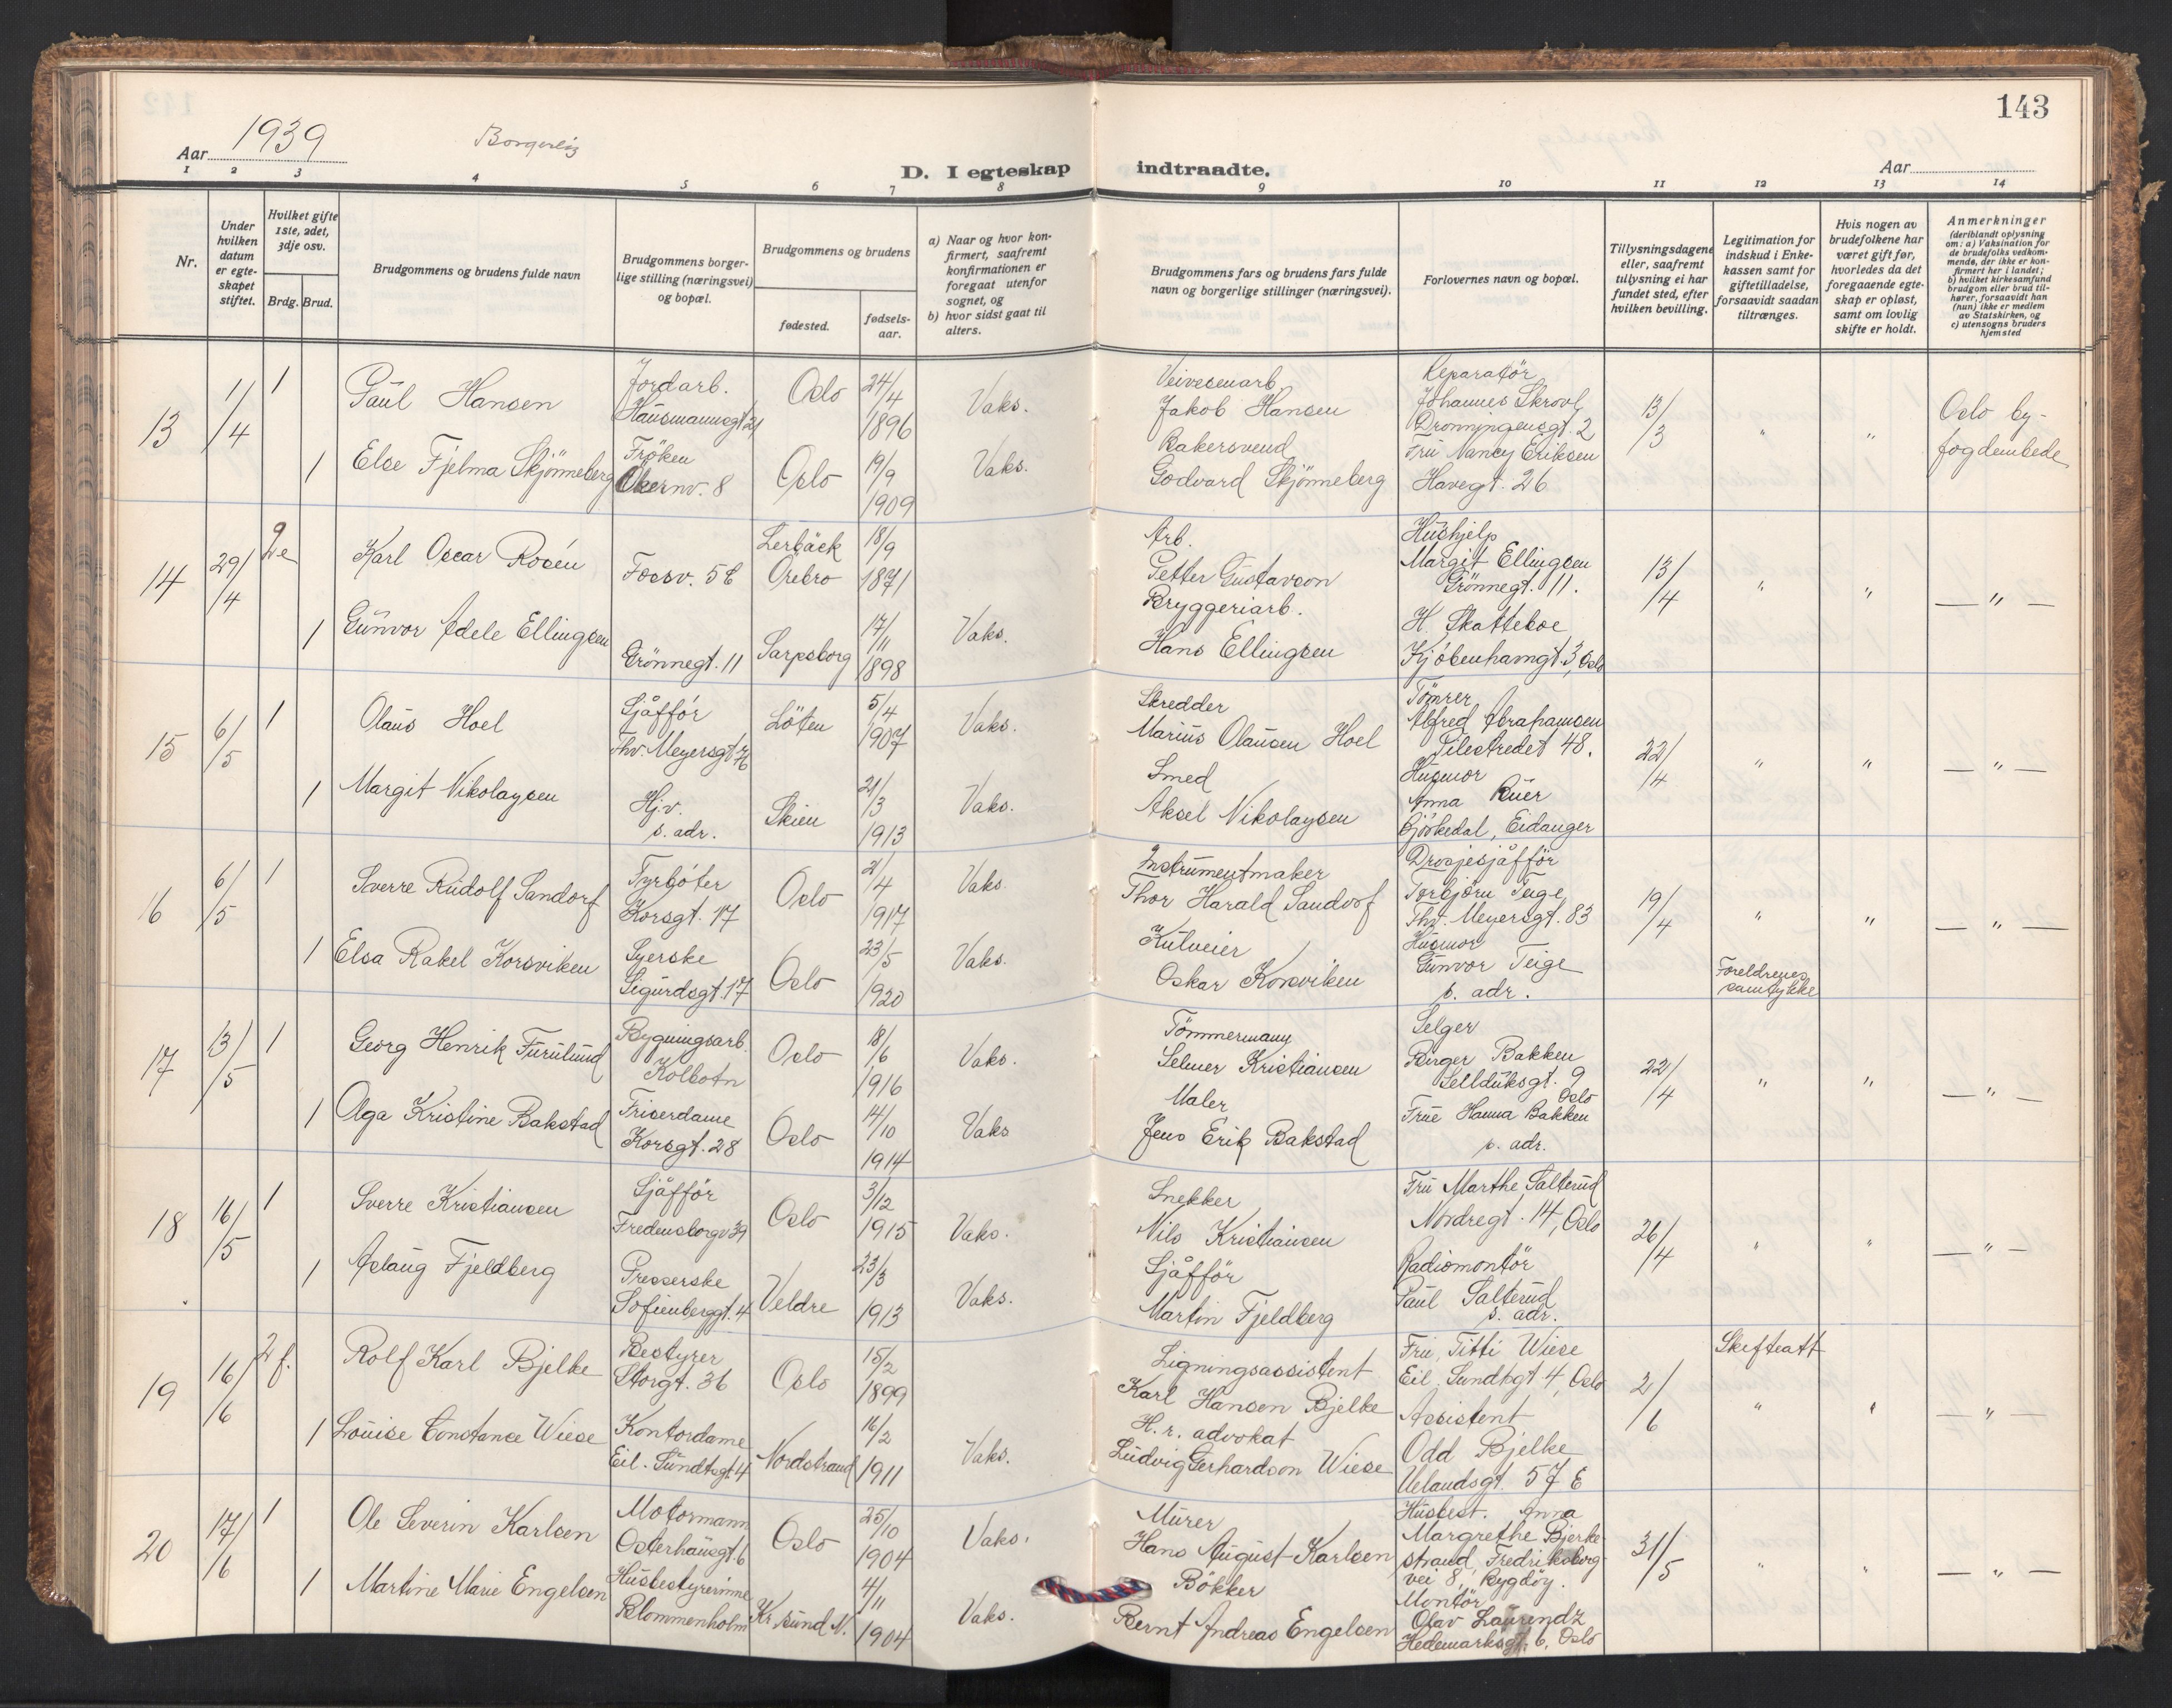 143
Aar 1939
Borgerlig
D. I egteskap indtraadte.
Aar
1 2 3 4 5 6 7 8 9 10 11 12 13 14
Nr.
Under hvilken datum er egteskapet stiftet.
Hvilket gifte 1ste, 2det, 3dje osv.
Brdg. Brud.
Brudgommens og brudens fulde navn
Brudgommens borgerlige stilling (næringsvei) og bopæl.
Brudgommens og brudens
fødested.
fødselsaar.
a) Naar og hvor konfirmert, saafremt konfirmationen er foregaat utenfor sognet, og
b) hvor sidst gaat til alters.
Brudgommens fars og brudens fars fulde navn og borgerlige stillinger (næringsvei).
Forlovernes navn og bopæl.
Tillysningsdagene eller, saafremt tillysning ei har fundet sted, efter hvilken bevilling.
Legitimation for indskud i Enkekassen samt for giftetilladelse, forsaavidt saadan tiltrænges.
Hvis nogen av brudefolkene har været gift før, hvorledes da det foregaaende egteskap er opløst, samt om lovlig skifte er holdt.
Anmerkninger
(deriblandt oplysning om: a) Vaksination for de brudefolks vedkommende, der ikke er konfirmert her i landet; b) hvilket kirkesamfund brudgom eller brud tilhører, forsaavidt han (hun) ikke er medlem av Statskirken, og c) utensogns bruders hjemsted
13 1/4 1 Paul Hansen Jordarb. Hausmannsgt 21 Oslo 24/4 1896 Vaks. Veivesenarb. Jakob Hansen Reparatør Johannes Skrovl Dronningensgt. 2 13/3 " " Oslo byfogdembede
1 Else Fjelma Skjønneberg Frøken Økernv. 8 Oslo 19/9 1909 Vaks. Bakersvend Godvard Skjønneberg Fru Nancy Eriksen Havegt. 26
14 29/4 2e Karl Oscar Rosén Fossv. 5 Lerbäck Örebro 18/9 1871 Arb. Petter Gustavson Hushjelp Margit Ellingsen Grønnegt. 11. 13/4 " " — " —
1 Gunvor Adele Ellingsen Grønnegt. 11 Sarpsborg 17/11 1898 Vaks. Bryggeriarb. Hans Ellingsen H. Skatteboe Kjøbenhavngt. 3, Oslo
15 6/5 1 Olaus Hoel Sjåffør Thv. Meyersgt 76 Løten 5/4 1907 Vaks. Skredder Marius Olausen Hoel Tømrer Alfred Abrahamsen Pilestredet 48. 22/4 " " — " —
1 Margit Nikolaysen Hj.v. s. adr. Skien 21/3 1913 Vaks. Smed Aksel Nikolaysen Husmor Anna Ruer Bjørkedal, Eidanger
16 6/5 1 Sverre Rudolf Sandorf Fyrbøter Korsgt. 17 Oslo 2/4 1917 Vaks. Instrumentmaker Thor Harald Sandorf Drosjesjåffør Torbjørn Teige Thv. Meyersgt. 83 19/4 " " — " —
1 Elsa Rakel Korsviken Syerske Sigurdsgt. 17 Oslo 23/5 1920 Vaks. Kulveier Oskar Korsviken Husmor Gunvor Teige s. adr. Foreldrenes samtykke
17 13/5 1 Georg Henrik Furulund Bygningsarb. Kolbotn Oslo 18/6 1916 Vaks. Tømmermann Selmer Kristiansen Selger Birger Bakken Sellduksgt. 9 Oslo 22/4 " " — " —
1 Olga Kristine Bakstad Friserdame Korsgt. 28 Oslo 14/10 1914 Vaks Maler Jens Erik Bakstad Frue Hanna Bakken s. adr.
18 16/5 1 Sverre Kristiansen Sjåffør Fredensborgv 39 Oslo 3/12 1915 Vaks. Snekker Nils Kristiansen Fru Marthe Salterud Nordregt. 14, Oslo 26/4 " " — " —
1 Aslaug Fjeldberg Presserske Sofienberggt. 4 Veldre 23/3 1913 Vaks. Sjåffør Martin Fjeldberg Radiomontør Paul Salterud s. adr.
19 16/6 2 f. Rolf Karl Bjelke Bestyrer Storgt. 36 Oslo 15/2 1899 Ligningsassistent Karl Hansen Bjelke Fru, Titti Wiese Eil. Sundtsgt 4, Oslo 2/6 Skifteatt " " — " —
1 Louise Constance Wiese Kontordame Eil. Sundtsgt 4 Nordstrand 16/2 1911 Vaks. H.r. advokat Ludvig Gerhardson Wiese Assistent Odd Bjelke Uelandsgt. 57 E
20 17/6 1 Ole Severin Karlsen Motormann Osterhausgt. 6 Oslo 25/10 1904 Vaks. Murer Hans August Karlsen Husbest. Anna Margrethe Bjerkestrand, Fredriksborgvei 8, Bygdøy. 31/5 " " — " —
1 Martine Marie Engelsen Husbestyrerinne Blommenholm Kr.sund N. 4/11 1904 Vaks. Bøkker Bernt Andreas Engelsen Montør Olav Laurendz Hedemarksgt. 6, Oslo